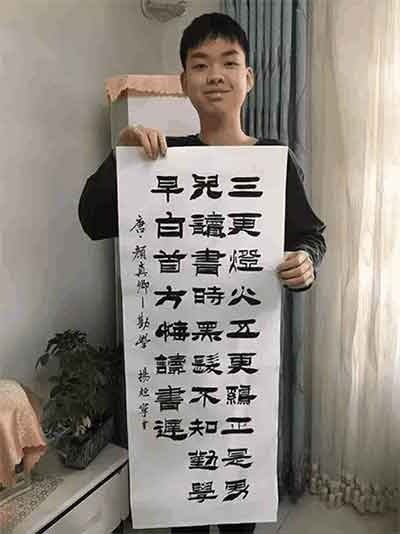 三更燈火五更鷄正是男
兒讀書時黑髮不知勤學
早白首方悔讀書遲
唐·顏真卿—勸學 楊